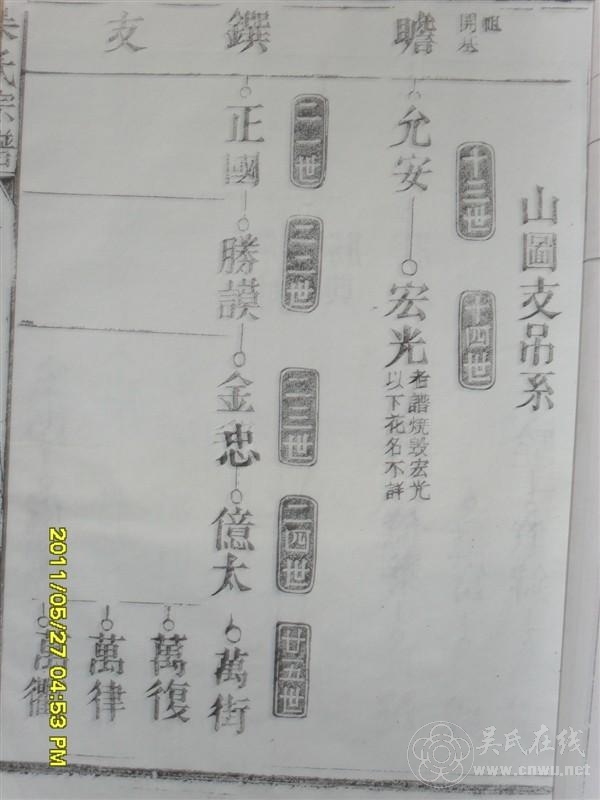 祖
開基
山圖支吊系
十三世
十四世
瞻
允安
宏光
老譜燒毀宏光
以下花名不詳
二一世
二二世
二三世
二四世
廿五世
鐉
正國
勝謨
金忠
億太
萬街
萬復
支
萬律
萬衢
朱氏宗譜
2011/05/27 04:53 PM
吴氏在线
www.cnwu.net